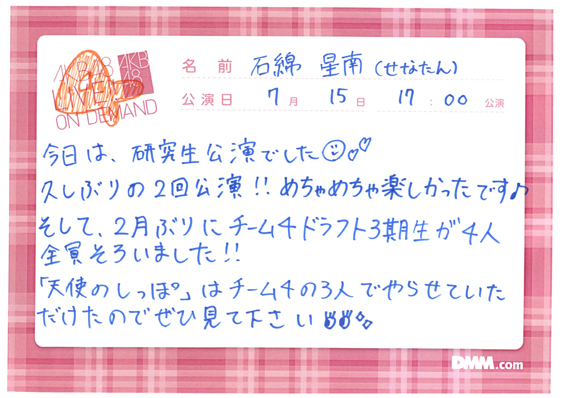 AKB48 AKB48
LIVE!!
ON DEMAND
名前 石綿 星南(せなたん)
公演日 7月 15日 17:00 公演
今日は、研究生公演でした
久しぶりの2回公演!!めちゃめちゃ楽しかったです♪
そして、2月ぶりにチーム4ドラフト3期生が4人
全員そろいました!!
「天使のしっぽ」はチーム4の3人でやらせていた
だけたのでぜひ見て下さい
DMM.com